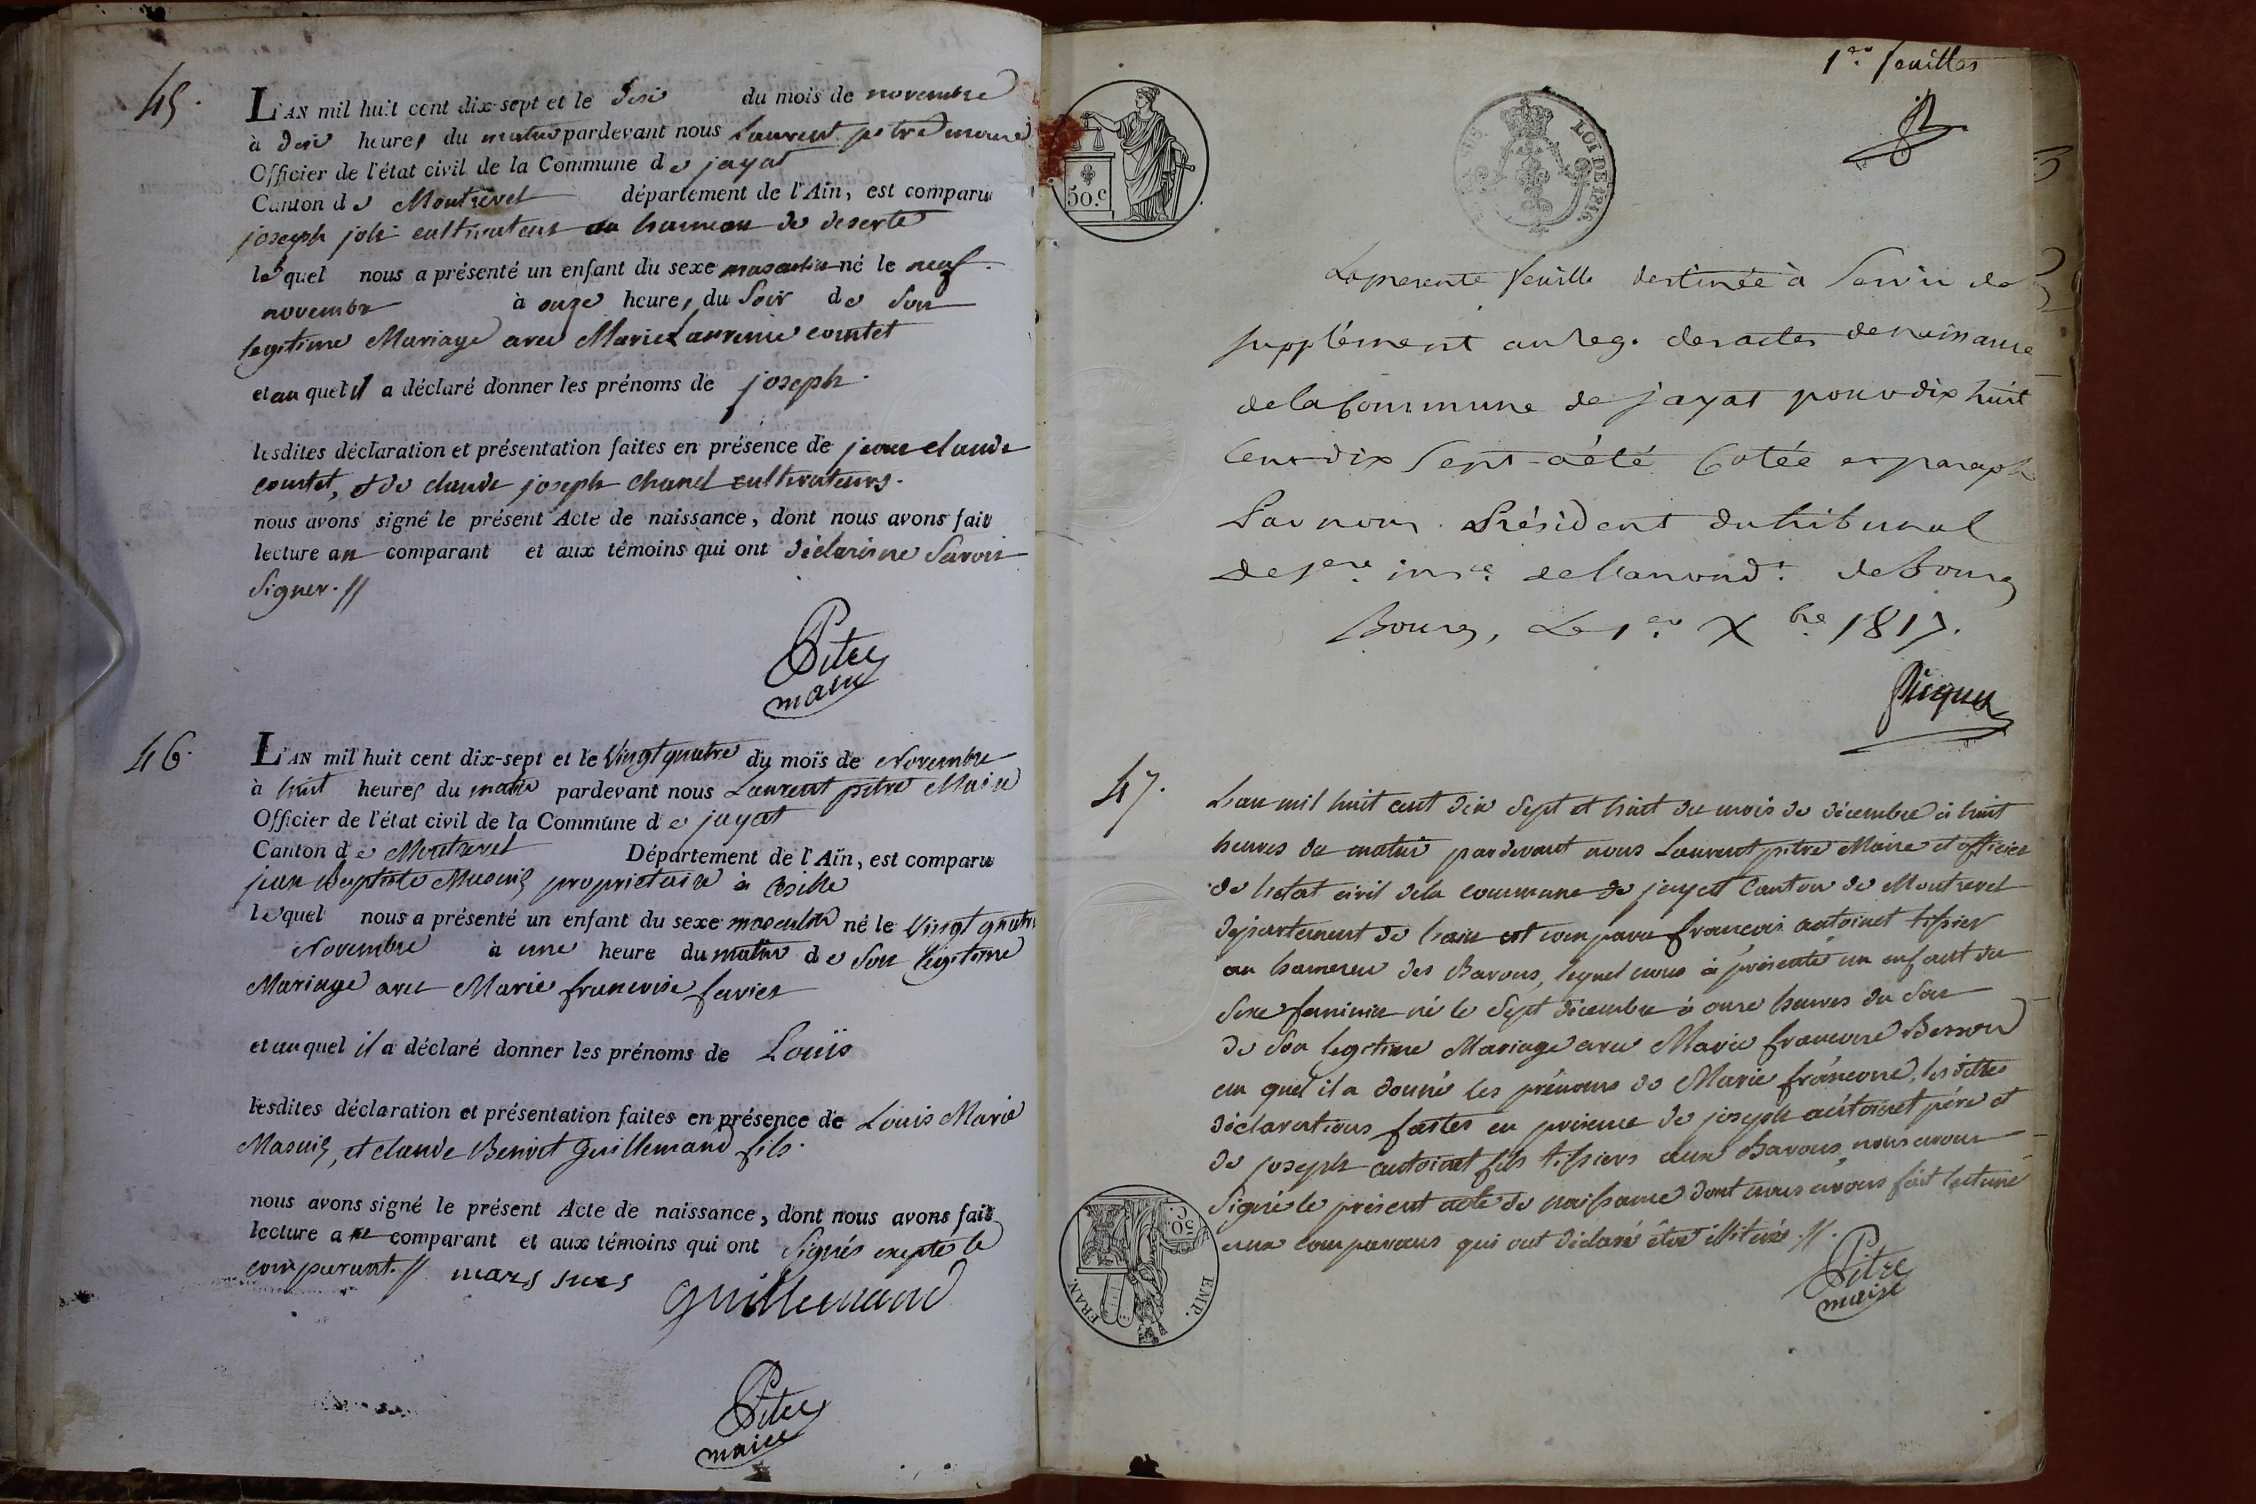 45.
L'AN mil huit cent dix-sept et le dix du mois de novembre
à dix heures du matin pardevant nous Laurent pitre maire
Officier de l'état civil de la Commune de jayat
Canton de Montrevel département de l'Ain, est comparu
joseph joli cultivateur au hameau de deserte
lequel nous a présenté un enfant du sexe masculin né le neuf
novembre à onze heures du Soir de Son
legitime Mariage avec Marie Laurence comtet
et au quel il a déclaré donner les prénoms de joseph.
lesdites déclaration et présentation faites en présence de jean claude
comtet, et de claude joseph chanel cultivateurs.
nous avons signé le présent Acte de naissance, dont nous avons fait
lecture au comparant et aux témoins qui ont déclaré ne Savoir
Signer. //
Pitre
maire
46.
L'AN mil huit cent dix-sept et le Vingt quatre du mois de Novembre
à huit heures du matin pardevant nous Laurent pitre Maire
Officier de l'état civil de la Commune de jayat
Canton de Montrevel Département de l'Ain, est comparu
jean Baptiste Masuis proprietaire à
lequel nous a présenté un enfant du sexe masculin né le Vingt quatre
Novembre à une heure du matin de Son legitime
Mariage avec Marie francoise favier
et au quel il a déclaré donner les prénoms de Louïs
lesdites déclaration et présentation faites en présence de Louis Marie
Masuis, et claude Benoit Guillemand fils.
nous avons signé le présent Acte de naissance, dont nous avons fait
lecture au comparant et aux témoins qui ont Signés excepté le
comparant. //
Guillemand
Pitre
maire
1re feuilles
50.c
LOI DE 1816.
La presente feuille destinée à Servir de
supplément au reg. des actes de naissance
de la Commune de jayat pour dix huit
Cent dix Sept a été Cotée et paraphé
Par nous Président du tribunal
de 1ere insce. de l'arrond.t de Bourg
Bourg, Le 1er Xbre 1817.
Picquet
47.
L'an mil huit cent dix Sept et huit du mois de décembre à huit
heures du matin pardevant nous Laurent pitre Maire et officier
de l'etat civil de la commune de jayat Canton de Montrevel
departement de l'ain est comparu francois antoinet tissier
au hameau des Barons, lequel nous à présenté un enfant du
Sexe feminin né le Sept décembre à onze heures du Soir
de Son legitime Mariage avec Marie francoise Besson
au quel il a donné les prénoms de Marie francoise, les dittes
déclarations faites en présence de joseph antoinet père et
de joseph antoinet fils tissiers aux Barons, nous avons
Signé le présent acte de naissance dont nous avons fait lecture
aux comparans qui ont déclaré être illiterés. //.
Pitre
maire
50.C.
EMP.
FRAN.